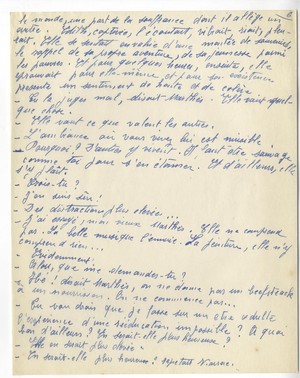 le monde, une part de la souffrance dont il allège un
autre. Edith, captivée, l'écoutait, vibrait, riait, pleu-
rait. Elle se sentait envahie d'une manière de
le rappel de sa propre aventure, de sa jeunesse parmi
les pauvres. Et pour quelques heures, ensuite, elle
éprouvait pour elle-même et pour son existence
présente un sentiment de honte et de colère.
- Tu la juges mal, disait Marthès. Elle vaut quel-
que chose.
- Elle vaut ce que valent les autres.
- L'ambiance où vous vivez lui est nuisible.
- Pourquoi ? D'autres y vivent. Il faut être sauvage
comme toi pour s'en étonner. Et d'ailleurs, elle
s'y plaît.
- Crois-tu ?
- J'en suis sûr !
- Des distractions plus élevées...
- J'ai essayé, mon vieux Marthès. Elle ne comprend
pas. La belle musique l'ennuie. La peinture, elle n'y
comprend rien...
- Evidemment.
- Alors, que me demandes-tu ?
- Hé ! disait Marthès, on ne donne pas un beefsteack
à un nourrisson. On ne commence pas...
- Tu voudrais que je fasse sur un être adulte
l'expérience d'une rééducation impossible ? A quoi
bon d'ailleurs ? En serait-elle plus heureuse ?
- Elle en serait plus élevée.
- En serait-elle plus heureuse ? répétait